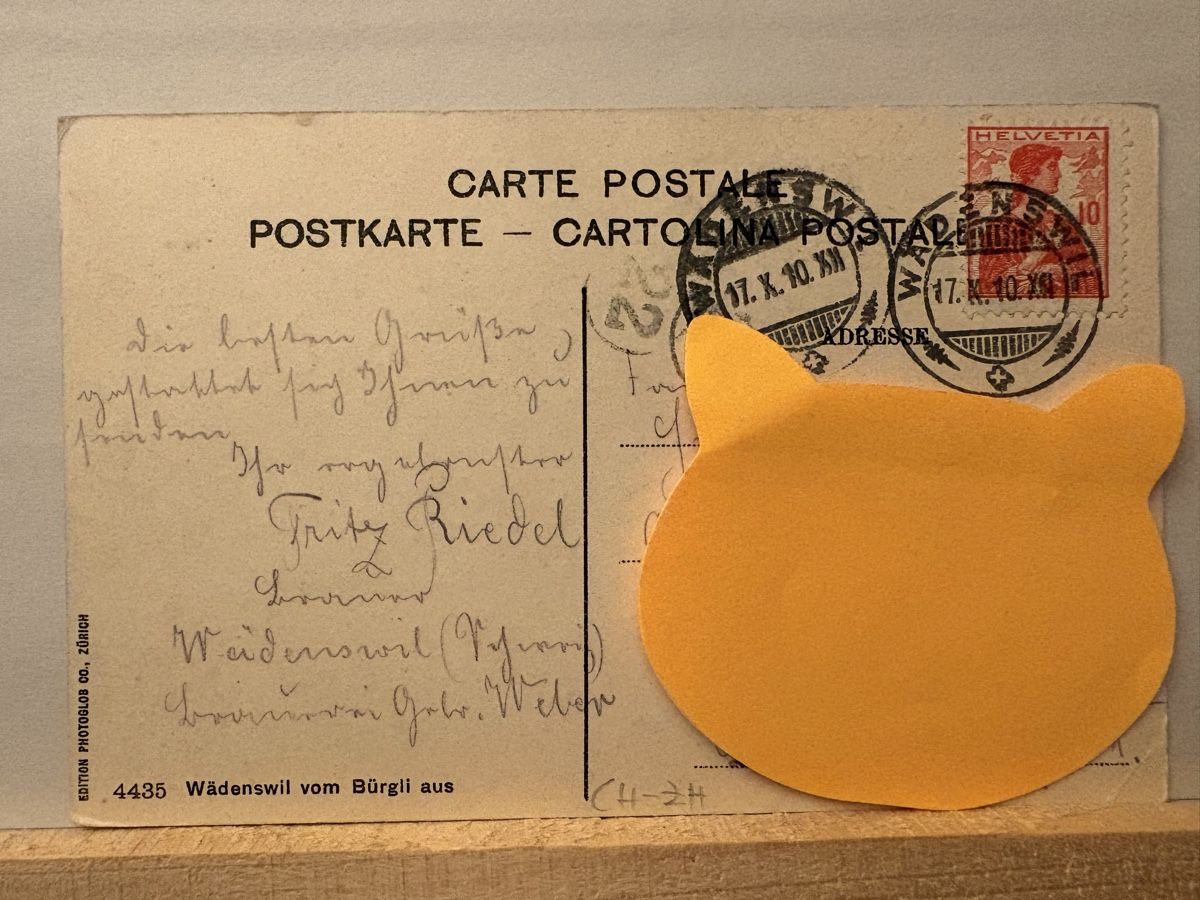 HELVETIA
10
CARTE POSTALE
POSTKARTE — CARTOLINA POSTALE
WÄDENSWIL
17. X. 10. XII
WÄDENSWIL
17. X. 10. XII
ADRESSE
Die besten Grüße
gestattet sich Ihnen zu
senden
Ihr ergebenster
Fritz Riedel
Brauer
Wädenswil (Schweiz)
Brauerei Gebr. Weber
EDITION PHOTOGLOB CO., ZÜRICH
4435 Wädenswil vom Bürgli aus
CH-ZH